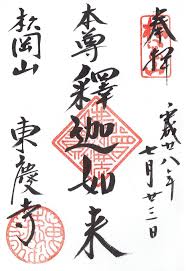 奉拝
平成廿八年
七月廿三日
本尊
釋迦如来
松岡山
東慶寺